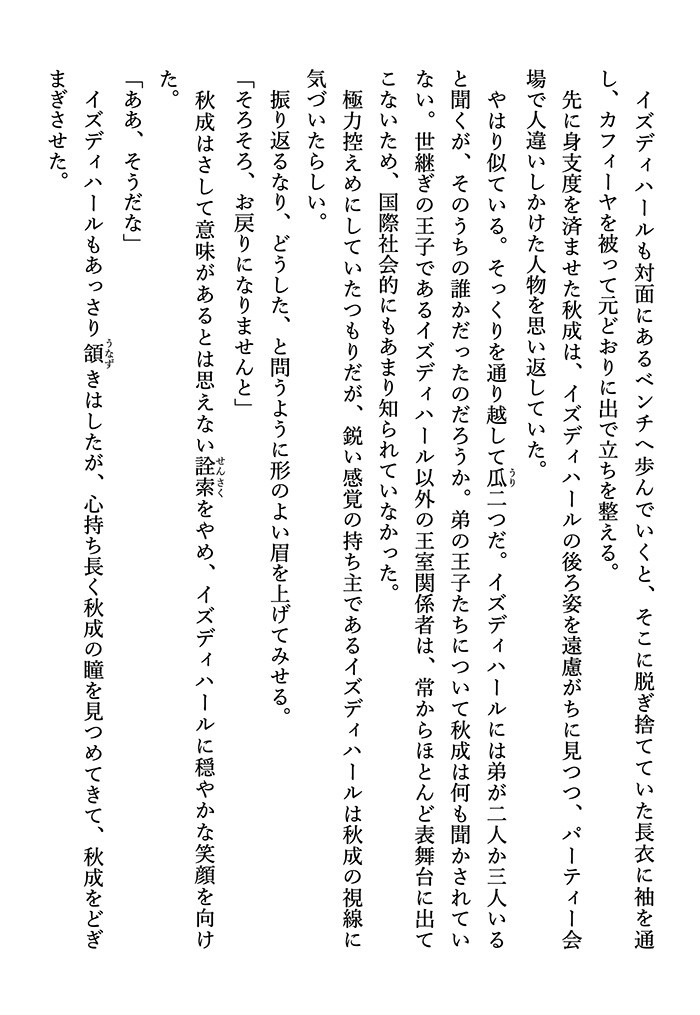 イズディハールも対面にあるベンチへ歩んでいくと、そこに脱ぎ捨てていた長衣に袖を通
し、カフィーヤを被って元どおりに出で立ちを整える。
　先に身支度を済ませた秋成は、イズディハールの後ろ姿を遠慮がちに見つつ、パーティー会
場で人違いしかけた人物を思い返していた。
　やはり似ている。そっくりを通り越して瓜二つだ。イズディハールには弟が二人か三人いる
と聞くが、そのうちの誰かだったのだろうか。弟の王子たちについて秋成は何も聞かされてい
ない。世継ぎの王子であるイズディハール以外の王室関係者は、常からほとんど表舞台に出て
こないため、国際社会的にもあまり知られていなかった。
　極力控えめにしていたつもりだが、鋭い感覚の持ち主であるイズディハールは秋成の視線に
気づいたらしい。
　振り返るなり、どうした、と問うように形のよい眉を上げてみせる。
「そろそろ、お戻りになりませんと」
　秋成はさして意味があるとは思えない詮索をやめ、イズディハールに穏やかな笑顔を向け
た。
「ああ、そうだな」
　イズディハールもあっさり頷きはしたが、心持ち長く秋成の瞳を見つめてきて、秋成をどぎ
まぎさせた。